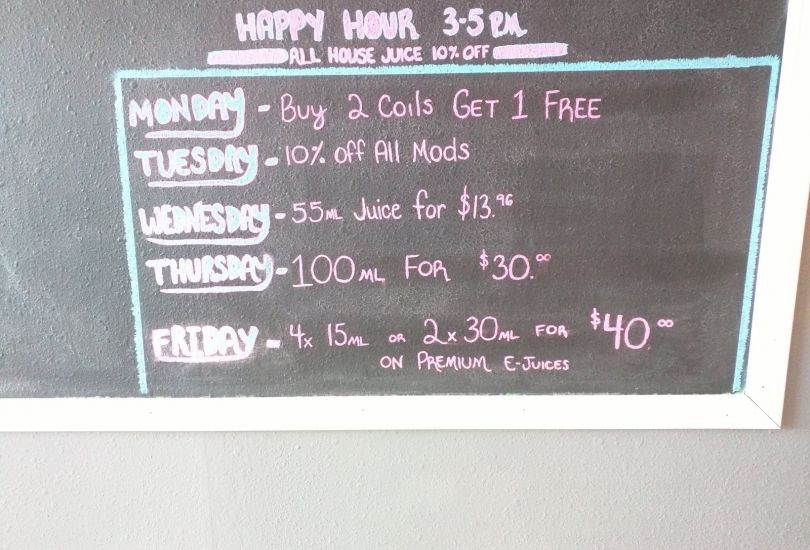 HAPPY HOUR 3-5 PM
ALL HOUSE JUICE 10% OFF
MONDAY - Buy 2 Coils GET 1 FREE
TUESDAY - 10% off All Mods
WEDNESDAY - 55ML Juice for $13.96
THURSDAY - 100 ML FOR $30.00
FRIDAY - 4x 15ML OR 2x 30ML FOR $40.00
ON PREMIUM E-JUICES